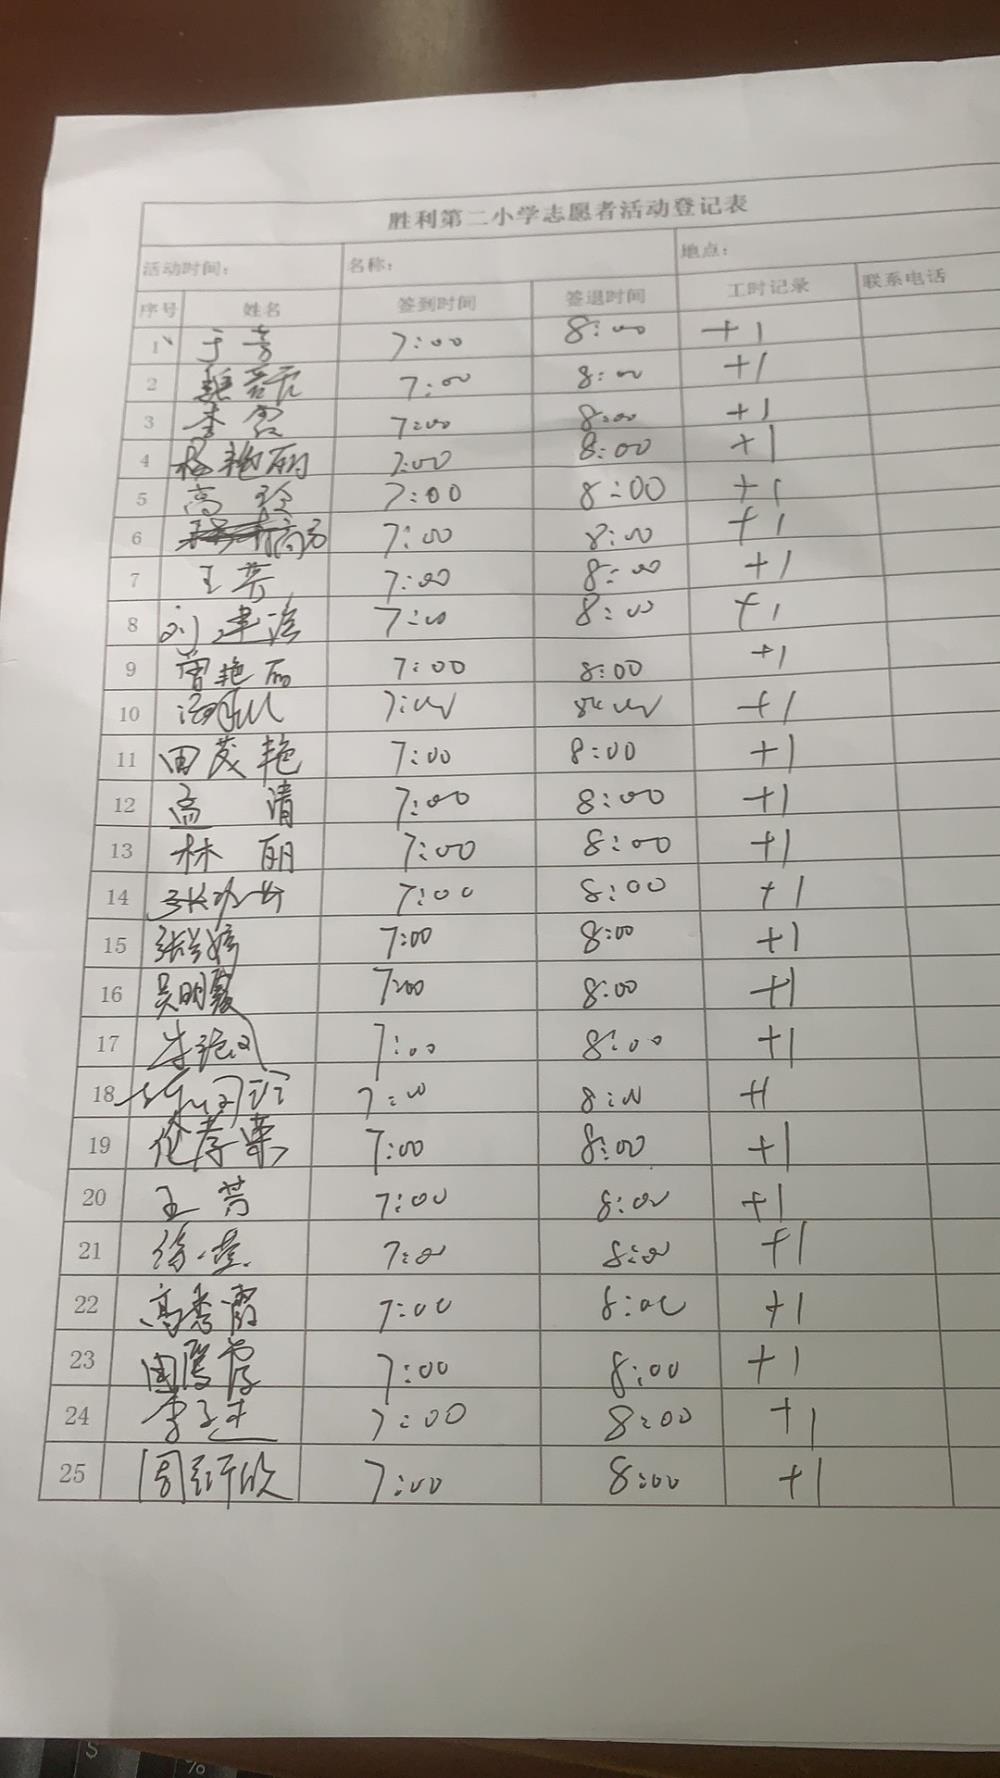 胜利第二小学志愿者活动登记表
活动时间： 名称： 地点：
序号 姓名 签到时间 签退时间 工时记录 联系电话
1 于芳 7:00 8:00 +1
2 7:00 8:00 +1
3 李霞 7:00 8:00 +1
4 杨艳丽 7:00 8:00 +1
5 高玲 7:00 8:00 +1
6 7:00 8:00 +1
7 王芳 7:00 8:00 +1
8 刘建 7:00 8:00 +1
9 曾艳丽 7:00 8:00 +1
10 7:00 8:00 +1
11 田茂艳 7:00 8:00 +1
12 孟清 7:00 8:00 +1
13 林丽 7:00 8:00 +1
14 7:00 8:00 +1
15 张 7:00 8:00 +1
16 吴明霞 7:00 8:00 +1
17 7:00 8:00 +1
18 7:00 8:00 +1
19 7:00 8:00 +1
20 王芳 7:00 8:00 +1
21 徐 7:00 8:00 +1
22 高秀霞 7:00 8:00 +1
23 7:00 8:00 +1
24 李 7:00 8:00 +1
25 周 7:00 8:00 +1
S
%